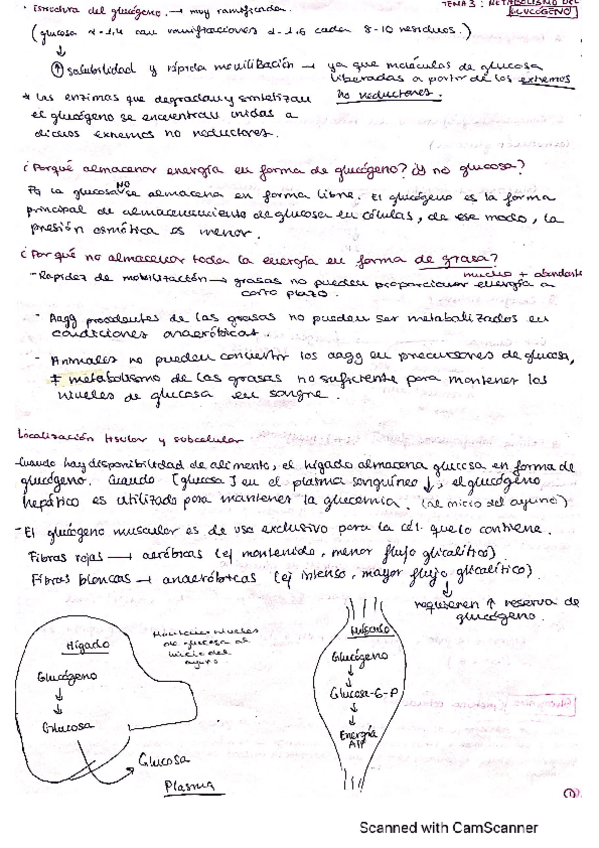 TEMA 3: METABOLISMO DEL GLUCÓGENO
· Estructura del glucógeno. → muy ramificada.
(glucosa α-1,4 con ramificaciones α-1,6 cada 8-10 residuos.)
↓
↑ solubilidad y rápida movilización → ya que moléculas de glucosa
liberadas a partir de los extremos
no reductores.
* Las enzimas que degradan y sintetizan
el glucógeno se encuentran unidas a
dichos extremos no reductores.
¿Porqué almacenar energía en forma de glucógeno? ¿y no glucosa?
Pq la glucosa NO se almacena en forma libre. El glucógeno es la forma
principal de almacenamiento de glucosa en células, de ese modo, la
presión osmótica es menor.
¿Por qué no almacenar toda la energía en forma de grasa?
mucho + abundante
- Rapidez de movilización → grasas no pueden proporcionar energía a
corto plazo.
- Aagg procedentes de las grasas no pueden ser metabolizados en
condiciones anaeróbicas.
- Animales no pueden convertir los aagg en precursores de glucosa,
‡ metabolismo de las grasas no suficiente para mantener los
niveles de glucosa en sangre.
Localización tisular y subcelular
- Cuando hay disponibilidad de alimento, el hígado almacena glucosa en forma de
glucógeno. Cuando [glucosa] en el plasma sanguíneo ↓, el glucógeno
hepático es utilizado para mantener la glucemia. (al inicio del ayuno)
- El glucógeno muscular es de uso exclusivo para la cél. que lo contiene.
Fibras rojas → aeróbicas (ej mantenido, menor flujo glicolítico)
Fibras blancas → anaeróbicas (ej intenso, mayor flujo glicolítico)
↓
requieren ↑ reserva de
glucógeno.
Hígado
Glucógeno
↓
↓
Glucosa
Glucosa
Plasma
Mantener niveles
de glucosa al
inicio del
ayuno
Glucógeno
↓
↓
Glucosa-6-P
↓
↓
Energía
ATP
1
Scanned with CamScanner